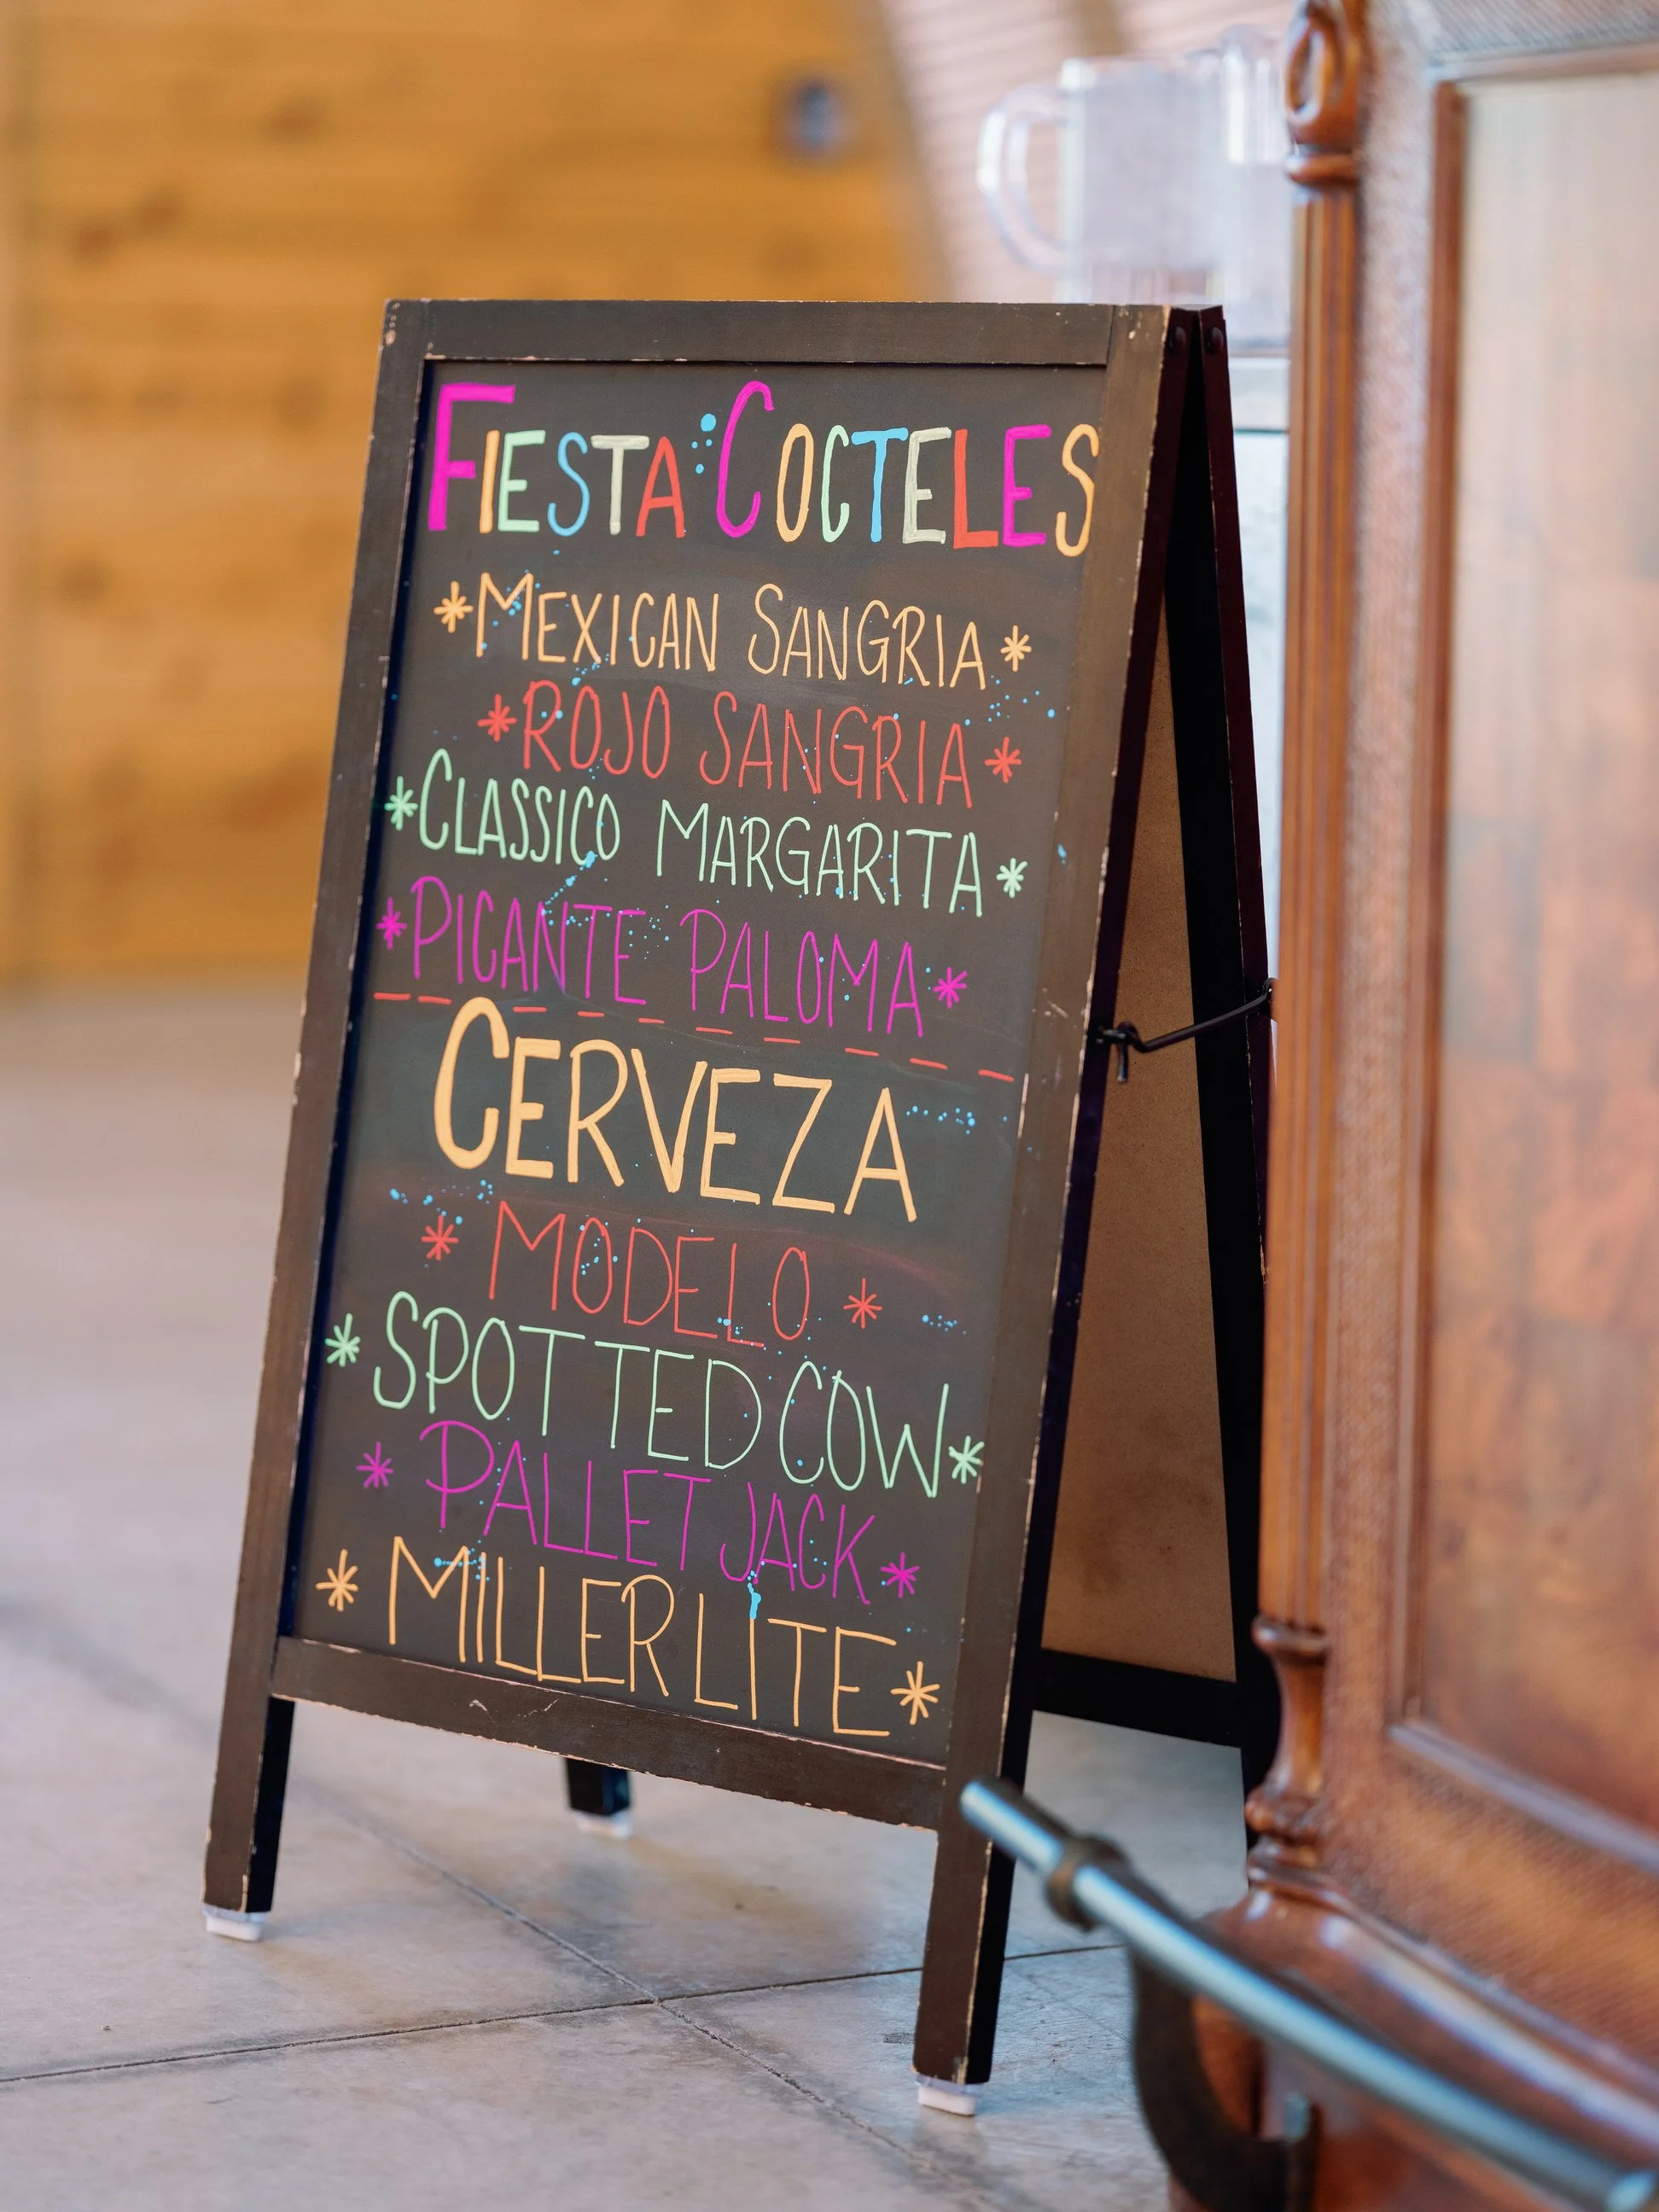 FIESTA COCTELES
*MEXICAN SANGRIA*
*ROJO SANGRIA*
*CLASSICO MARGARITA*
*PICANTE PALOMA*
CERVEZA
* MODELO *
*SPOTTED COW*
* PALLET JACK *
* MILLER LITE *